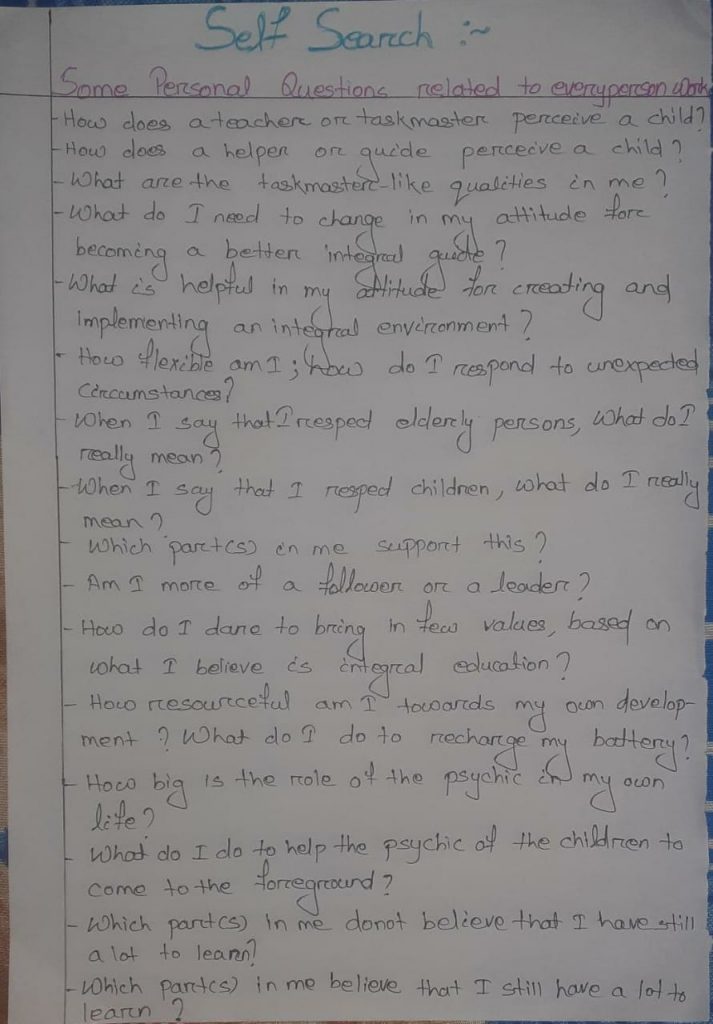 Self Search :~
Some Personal Questions related to everyperson work
- How does a teacher or taskmaster perceive a child?
- How does a helper or guide perceive a child?
- What are the taskmaster-like qualities in me?
- What do I need to change in my attitude for
becoming a better integral guide?
- What is helpful in my attitude for creating and
implementing an integral environment?
- How flexible am I; how do I respond to unexpected
circumstances?
- When I say that I respect elderly persons, What do I
really mean?
- When I say that I respect children, what do I really
mean?
- Which part(s) in me support this?
- Am I more of a follower or a leader?
- How do I dare to bring in few values, based on
what I believe is integral education?
- How resourceful am I towards my own develop-
ment? What do I do to recharge my battery?
- How big is the role of the psychic in my own
life?
- What do I do to help the psychic of the children to
come to the foreground?
- Which part(s) in me donot believe that I have still
a lot to learn?
- Which part(s) in me believe that I still have a lot to
learn?